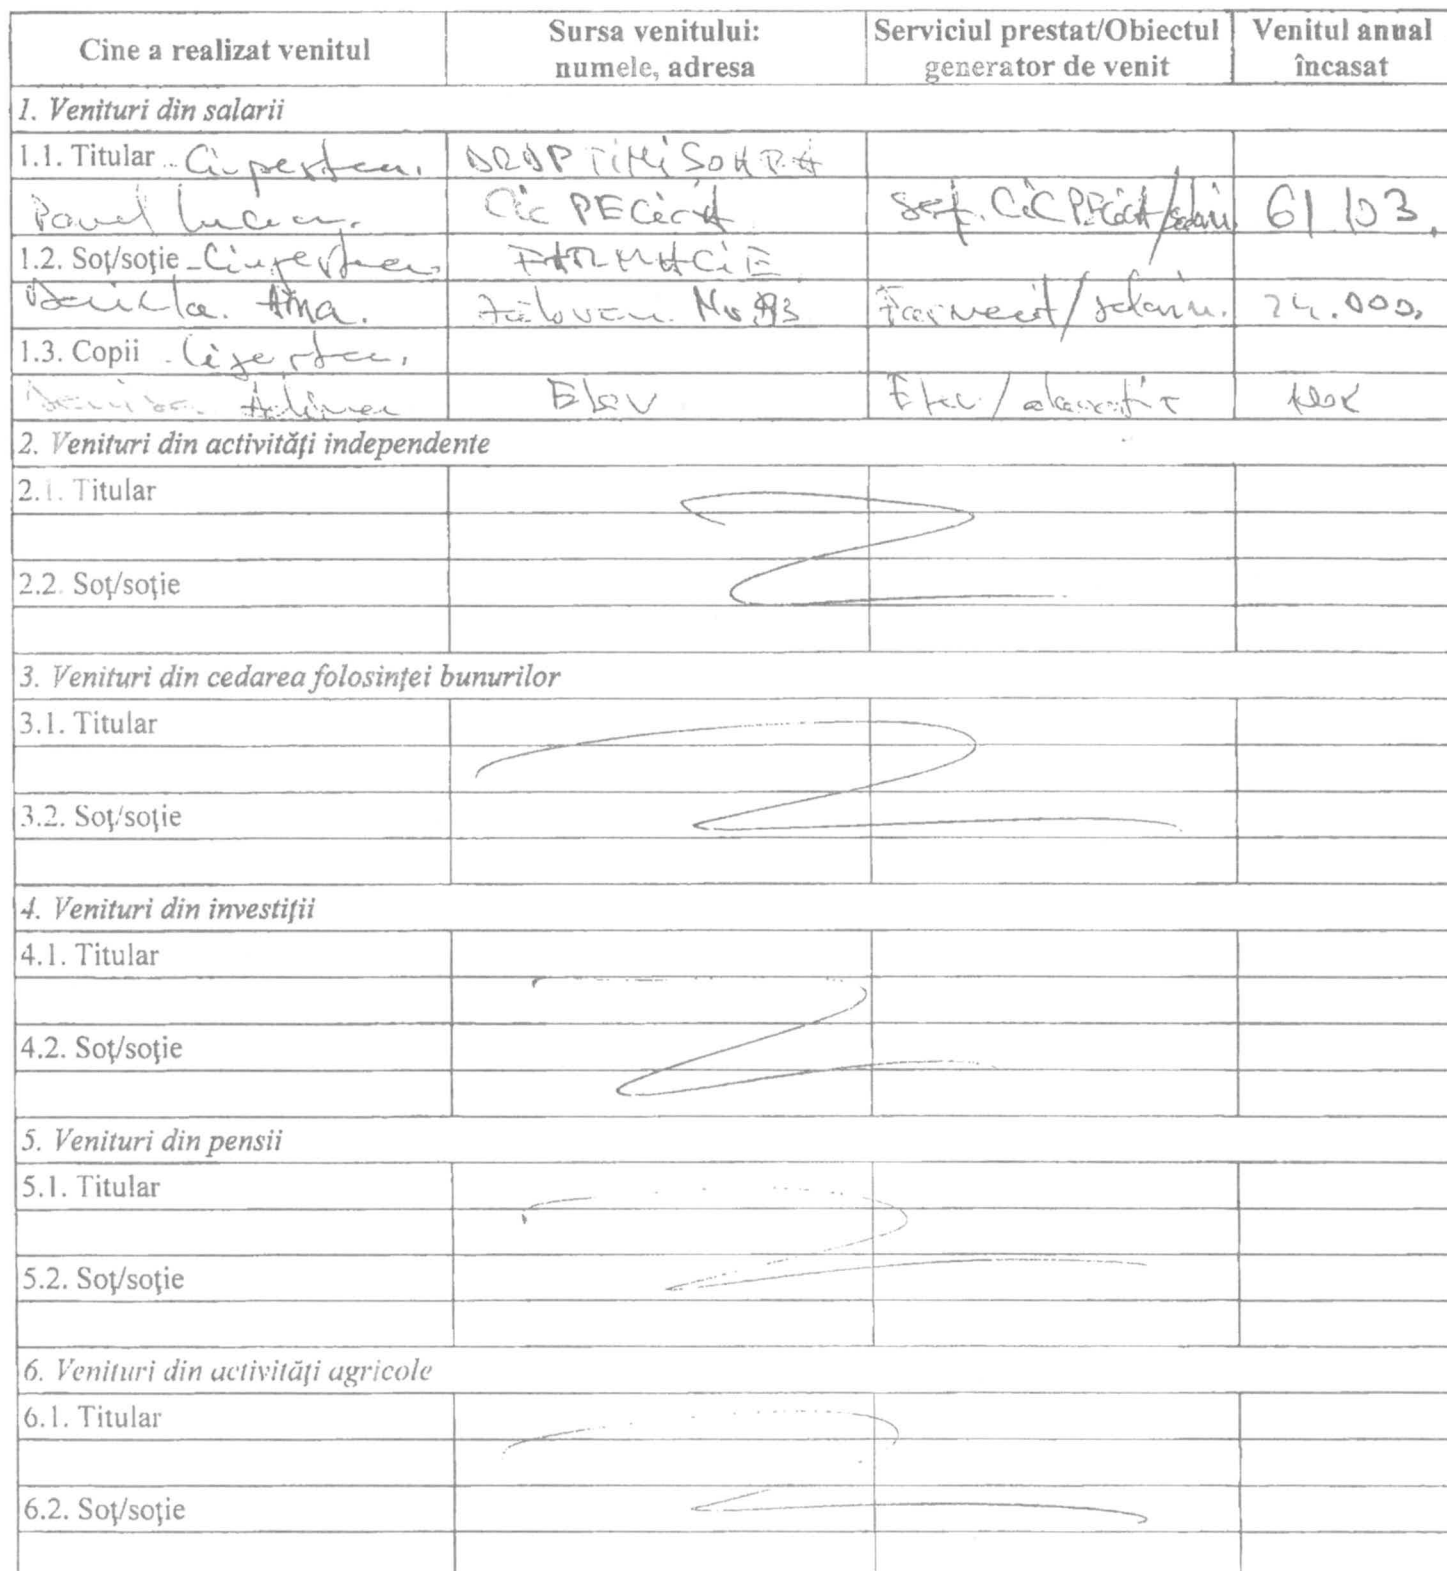 Cine a realizat venitul
Sursa venitului:
numele, adresa
Serviciul prestat/Obiectul
generator de venit
Venitul anual
încasat
1. Venituri din salarii
1.1. Titular
DRDP TIMISOARA
Pavel Lucian.
CIC PECICA
Sef. CIC PECICA/salariu
61103.
1.2. Soţ/soţie
FARMACIE
Ana.
No
Farmacist/salariu.
24.000.
1.3. Copii
Denisa Adina
Elev
Elev/
2. Venituri din activităţi independente
2.1. Titular
2.2. Soţ/soţie
3. Venituri din cedarea folosinţei bunurilor
3.1. Titular
3.2. Soţ/soţie
4. Venituri din investiţii
4.1. Titular
4.2. Soţ/soţie
5. Venituri din pensii
5.1. Titular
5.2. Soţ/soţie
6. Venituri din activităţi agricole
6.1. Titular
6.2. Soţ/soţie